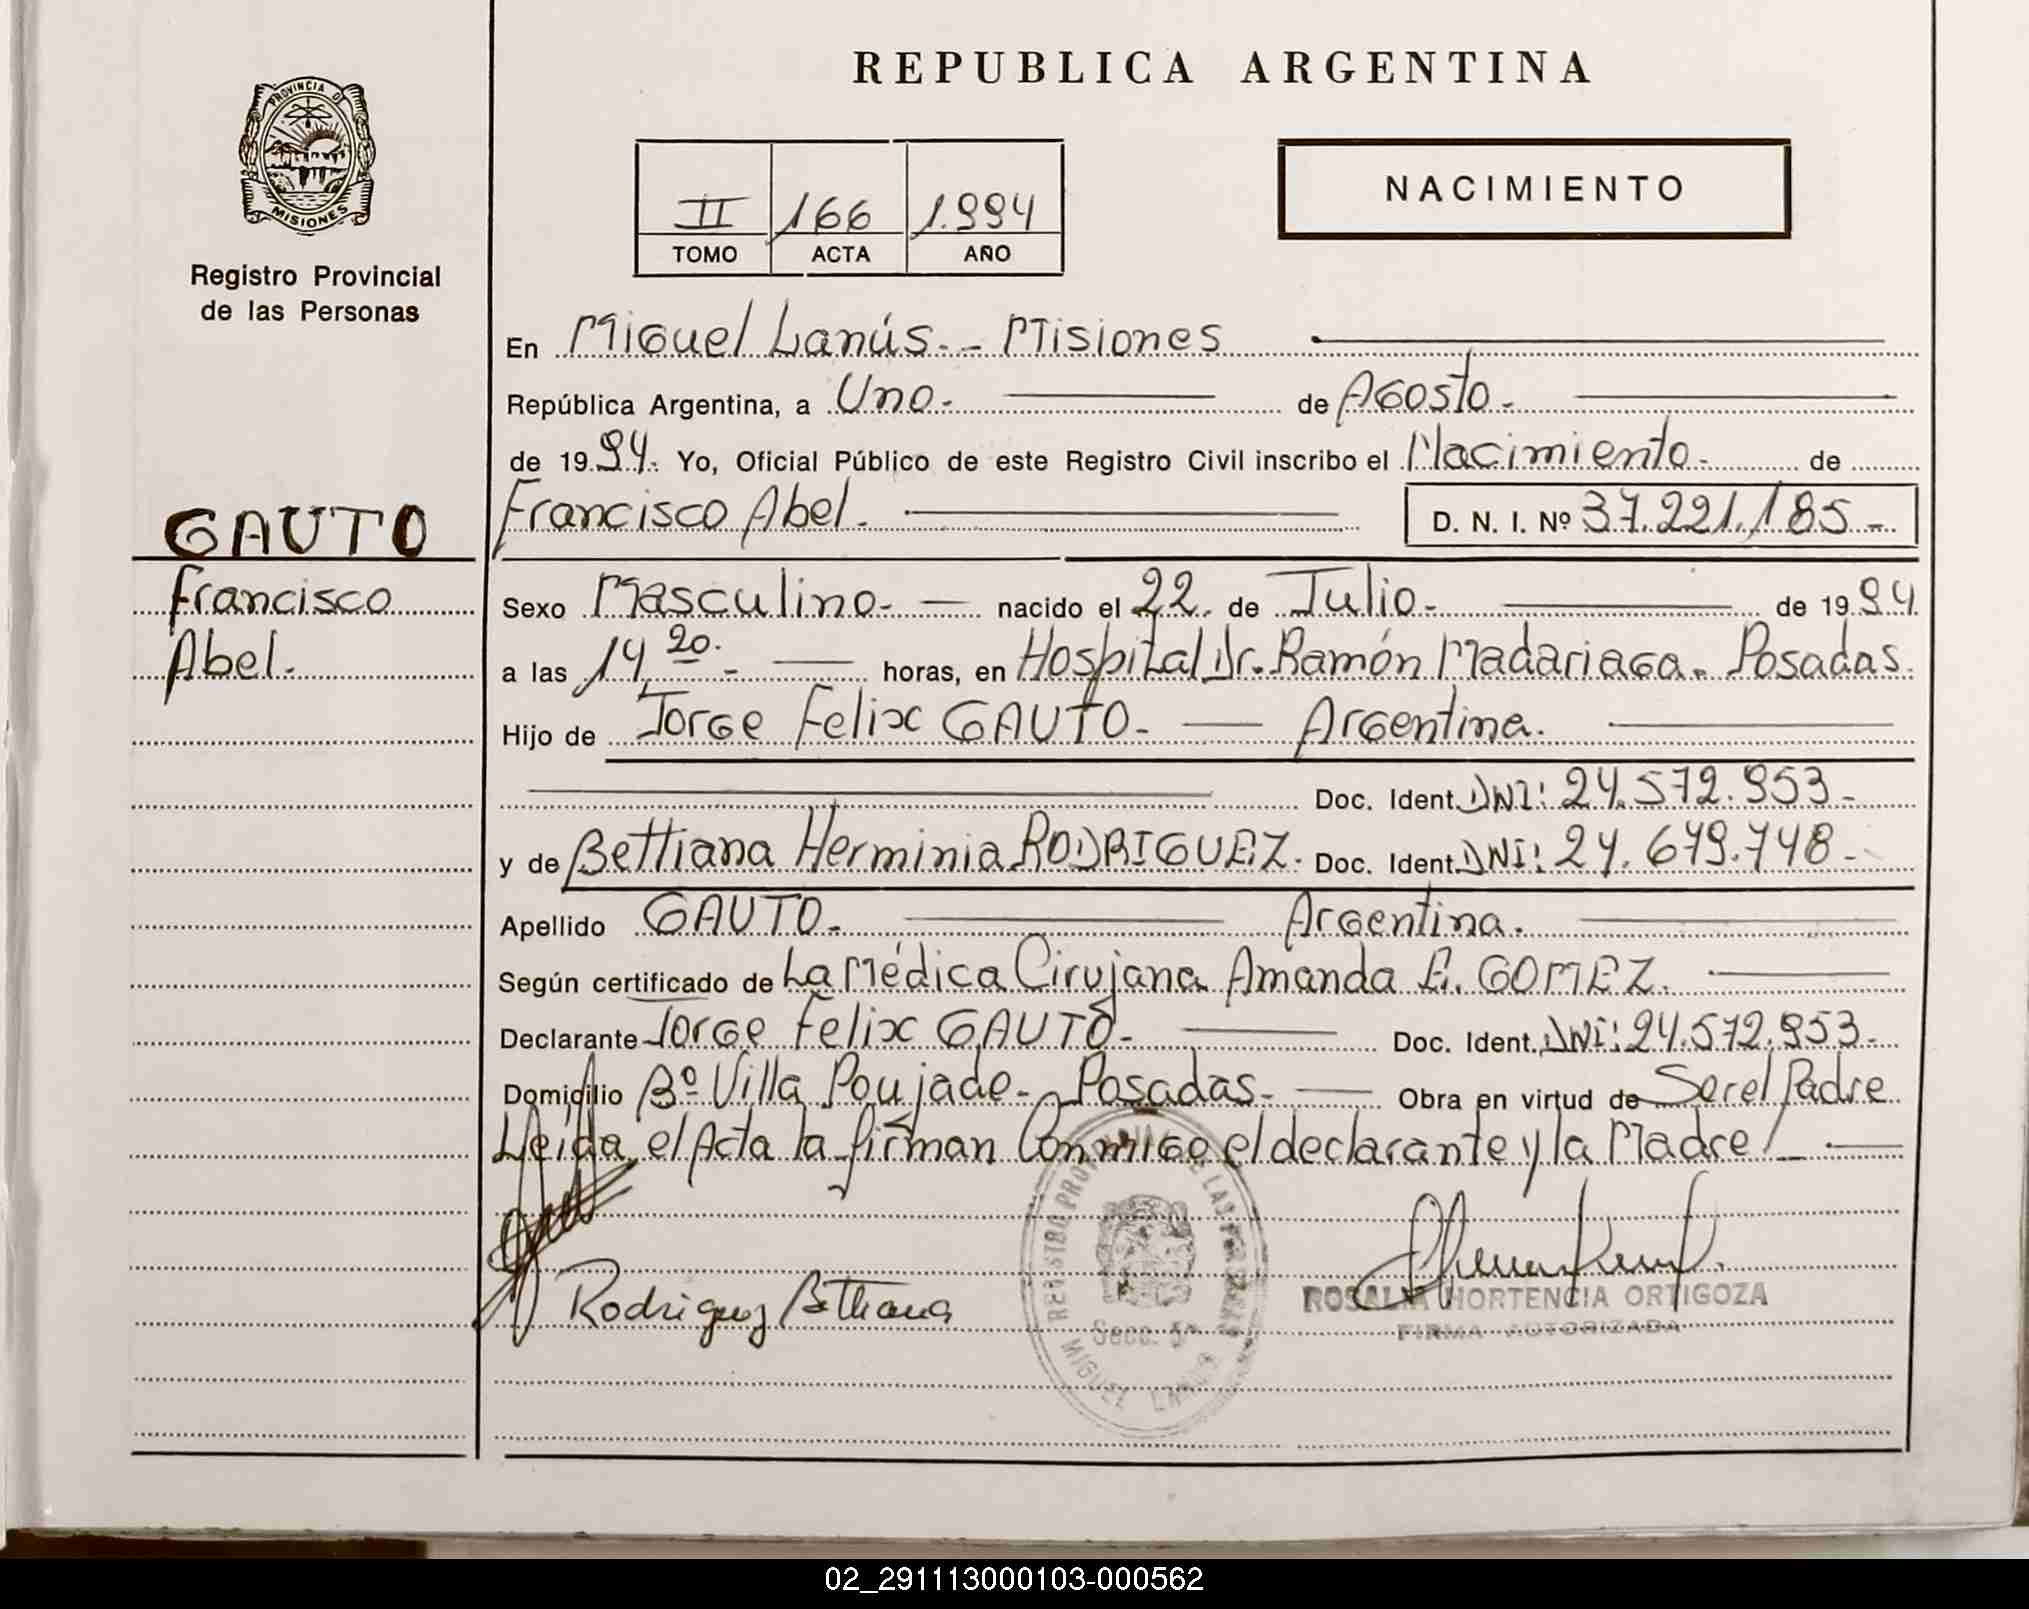 REPUBLICA ARGENTINA
PROVINCIA D
MISIONES
Registro Provincial
de las Personas
II 166 1.994
TOMO ACTA AÑO
NACIMIENTO
En Miguel Lanús.- Misiones
República Argentina, a Uno.- de Agosto.-
de 1994.- Yo, Oficial Público de este Registro Civil inscribo el Nacimiento.- de
Francisco Abel.- D. N. I. Nº 37.221.185.-
GAUTO
Francisco
Abel.-
Sexo Masculino.- nacido el 22. de Julio.- de 1994
a las 14,20.- horas, en Hospital Dr. Ramón Madariaga.- Posadas.
Hijo de Jorge Felix GAUTO.- Argentina.-
Doc. Ident. DNI: 24.572.953.-
y de Bettiana Herminia RODRIGUEZ.- Doc. Ident. DNI: 24.679.748.-
Apellido GAUTO.- Argentina.-
Según certificado de La Médica Cirujana Amanda E. GOMEZ.
Declarante Jorge Felix GAUTO.- Doc. Ident. DNI: 24.572.953.-
Domicilio Bº Villa Poujade.- Posadas.- Obra en virtud de Ser el Padre
Leída el Acta la firman Conmigo el declarante y la Madre!-
Rodriguez Bettiana
REGISTRO PROV LAS
Secc. 5ª
MIGUEL LANUS
ROSALIA HORTENCIA ORTIGOZA
FIRMA AUTORIZADA
02_291113000103-000562